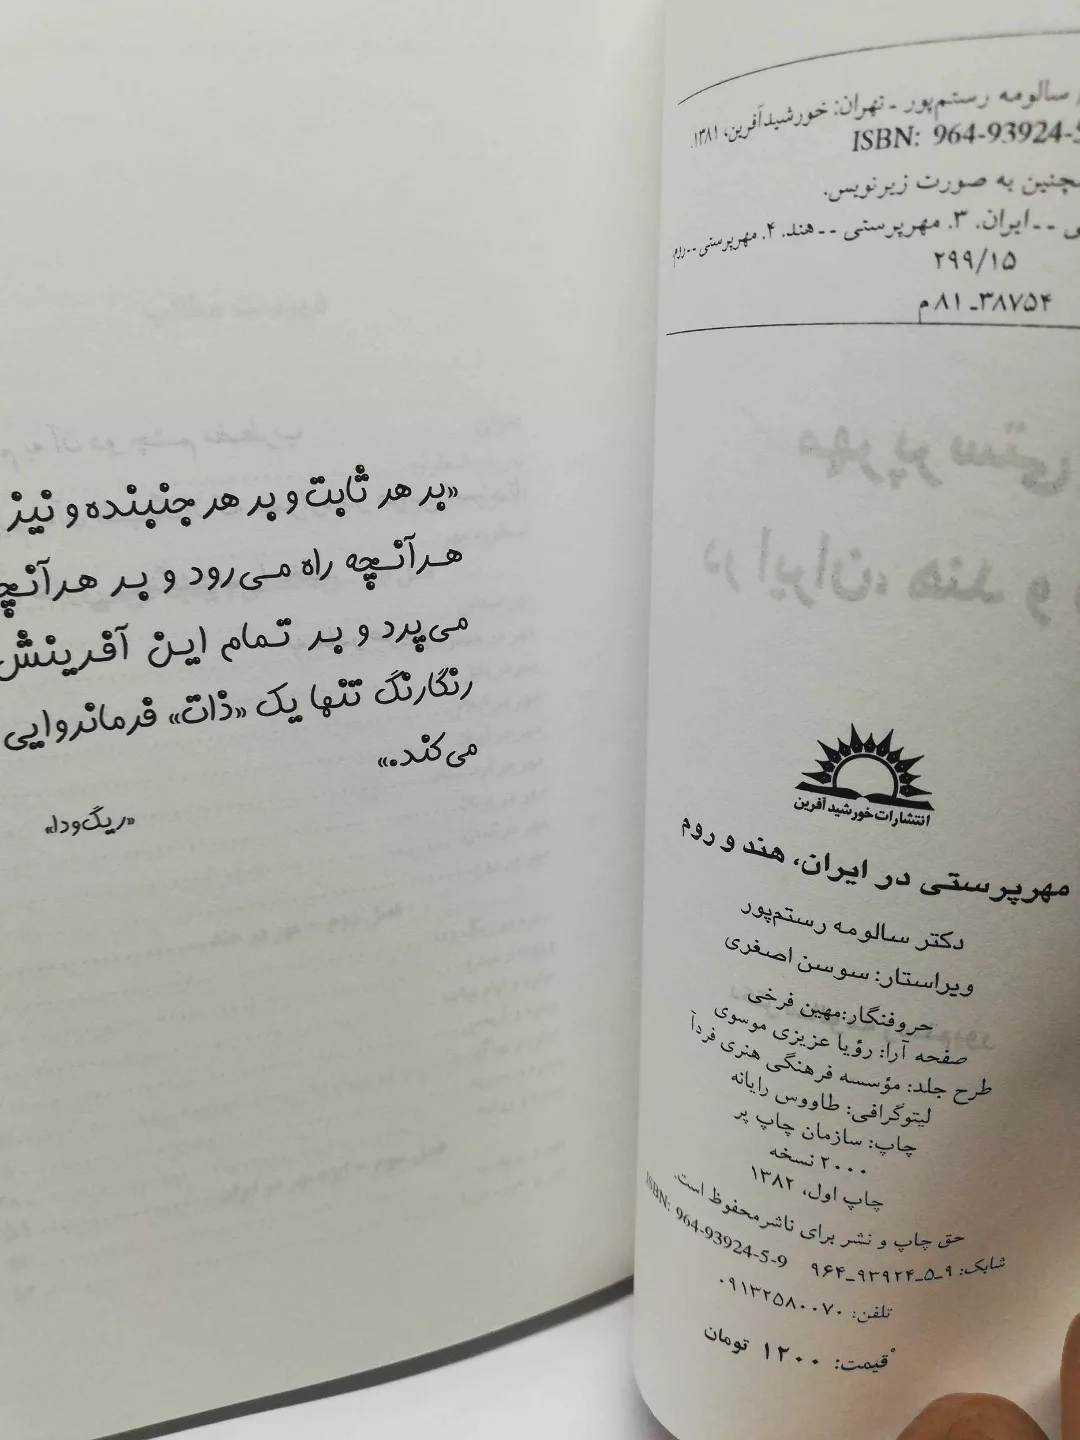 سالومه رستم‌پور ـ تهران: خورشیدآفرین، ۱۳۸۱.
ISBN: 964-93924-5
به صورت زیرنویس.
ـ ـ ایران. ۳. مهرپرستی ـ ـ هند. ۴. مهرپرستی ـ ـ روم
۲۹۹/۱۵
۳۸۷۵۴ـ ۸۱ م
انتشارات خورشید آفرین
مهرپرستی در ایران، هند و روم
دکتر سالومه رستم‌پور
ویراستار: سوسن اصغری
حروفنگار:مهین فرخی
صفحه آرا: رؤیا عزیزی موسوی
طرح جلد: مؤسسه فرهنگی هنری فردآ
لیتوگرافی: طاووس رایانه
چاپ: سازمان چاپ پر
۲۰۰۰ نسخه
چاپ اول، ۱۳۸۲
حق چاپ و نشر برای ناشرمحفوظ است.
شابک: ۹ـ۵ـ۹۳۹۲۴ـ۹۶۴ ISBN: 964-93924-5-9
تلفن: ۰۹۱۳۲۵۸۰۰۷۰
قیمت: ۱۲۰۰ تومان
«بر هر ثابت و بر هر جنبنده و نیز
هرآنچه راه می‌رود و بر هرآنچه
می‌پرد و بر تمام این آفرینش
رنگارنگ تنها یک «ذات» فرمانروایی
می‌کند.»
«ریگ‌ودا»